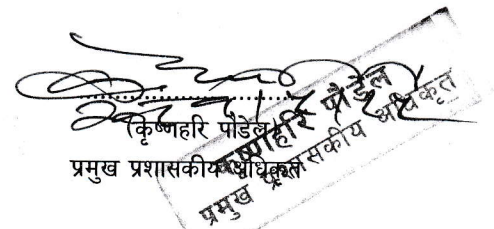 (कृष्णहरि पौडेल)
प्रमुख प्रशासकीय अधिकृत
कृष्णहरि पौडेल
प्रमुख प्रशासकीय अधिकृत